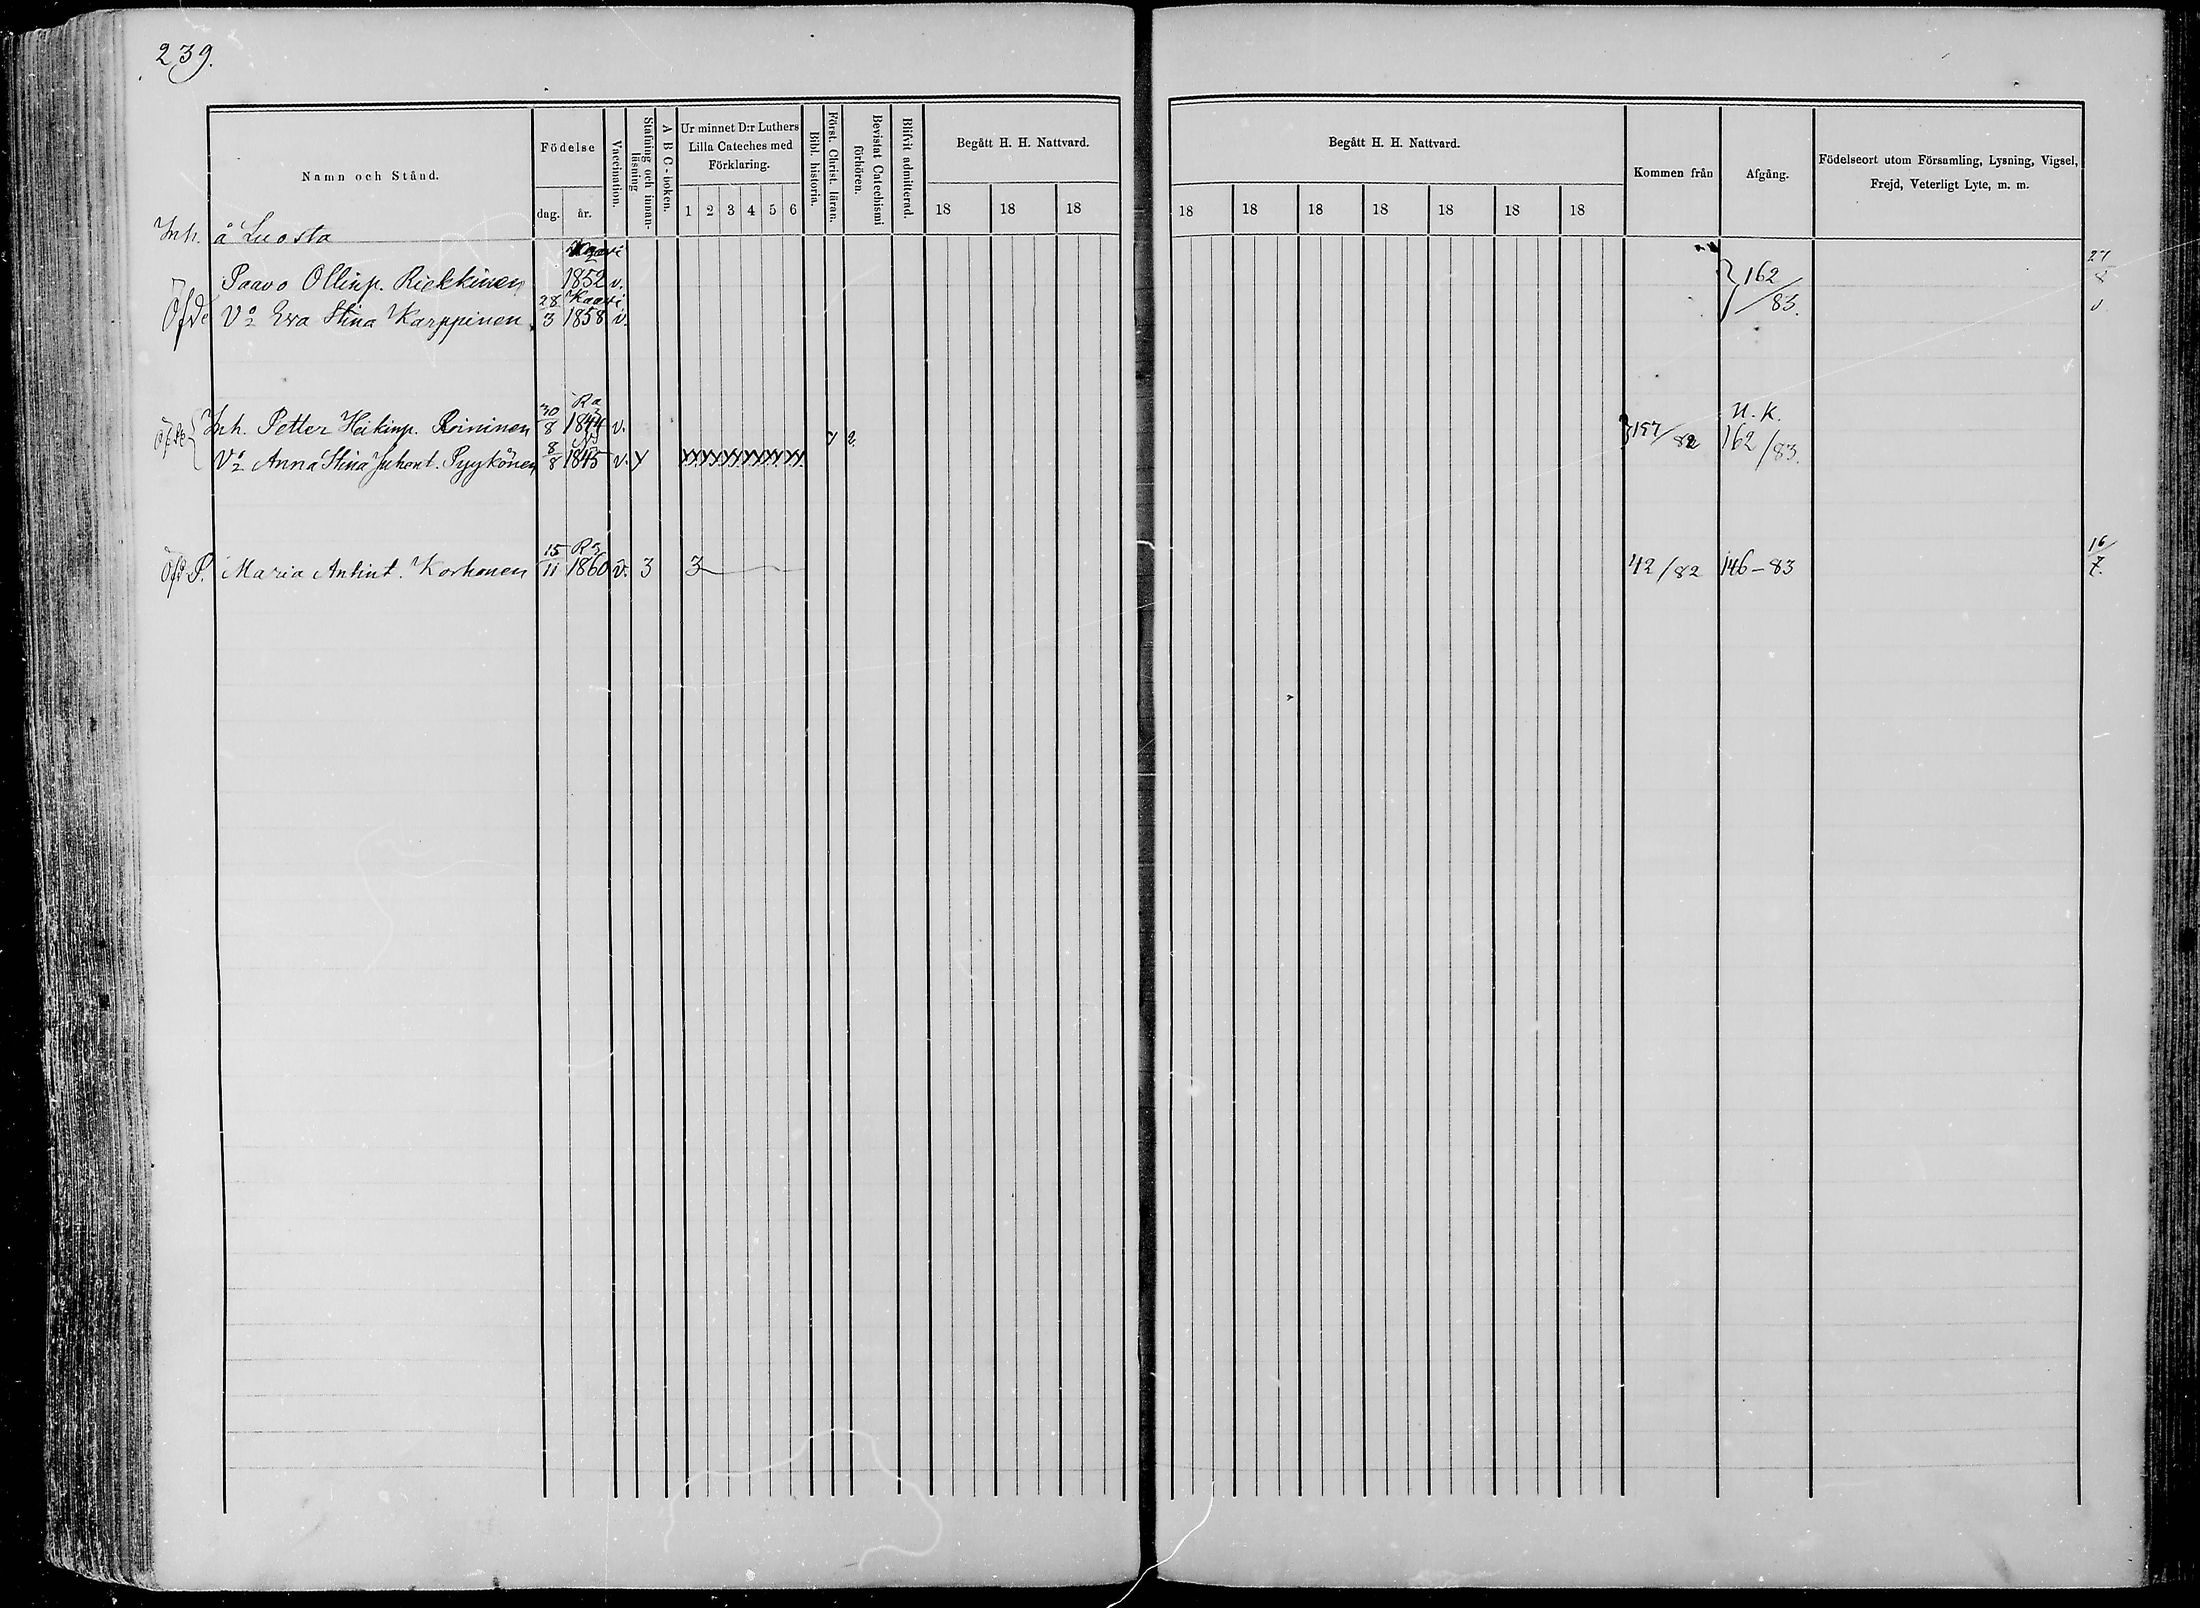 239.
Namn och Stånd.
Födelse
dag. år.
Vaccination.
Stafning och innan-läsning
A B C - boken.
Ur minnet D:r Luthers Lilla Cateches med Förklaring.
1 2 3 4 5 6
Bibl. historia.
Först. Christ. läran.
Bevistat Catechismi förhören.
Blifvit admitterad.
Begått H. H. Nattvard.
18 18 18
Begått H. H. Nattvard.
18 18 18 18 18 18 18
Kommen från
Afgång.
Födelseort utom Församling, Lysning, Vigsel, Frejd, Veterligt Lyte, m. m.
Inh. å Luosta
Kaavi
Paavo Ollinp. Riekkinen 1852 v. 162/83. 27/8
Kaavi
Öfde Vo Eva Stina Karppinen 28/3 1858 v. v.
Ra
Inh. Petter Heikinp. Roininen 30/8 1844 v. 197/82 U. K. 162/83.
Vo Anna Stina Juhont. Pyykönen 8/8 1845 v. y
Ra
Öfd P. Maria Antint. Korhonen 15/11 1860 v. 3 3 42/82 146-83 16/7.